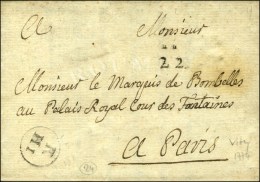 A Monsieur
22
Monsieur le Marquis de Bombelles
au Palais Royal Cour des fontaines
A Paris